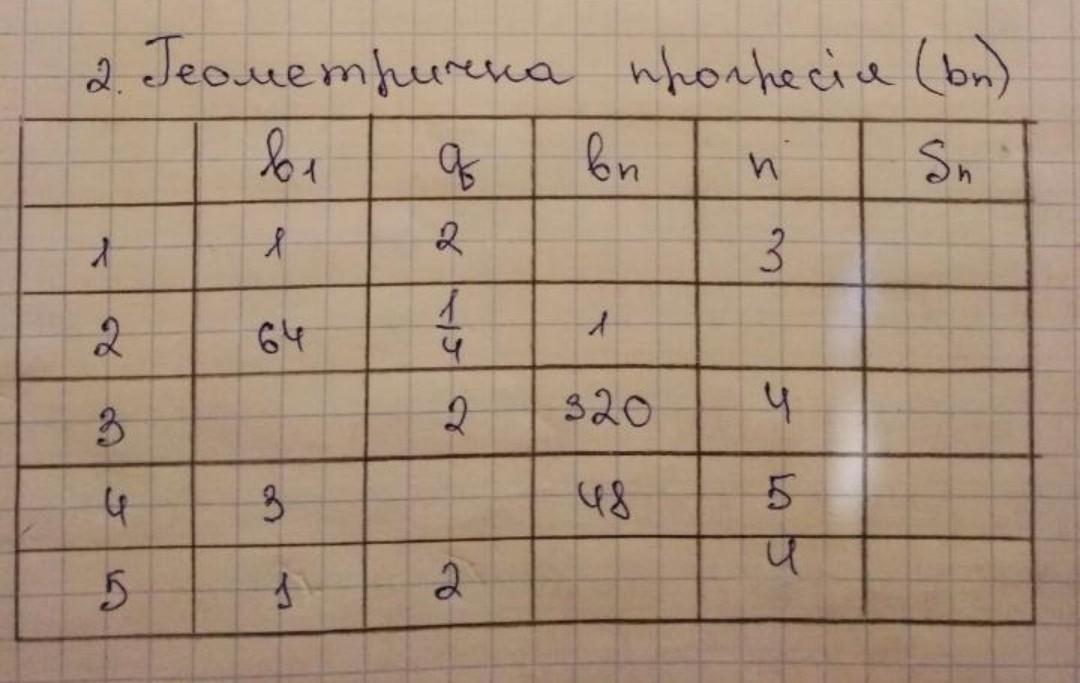 2. Геометрична прогресія (bn)
b1 q bn n Sn
1 1 2 3
2 64 1/4 1
3 2 320 4
4 3 48 5
5 1 2 4